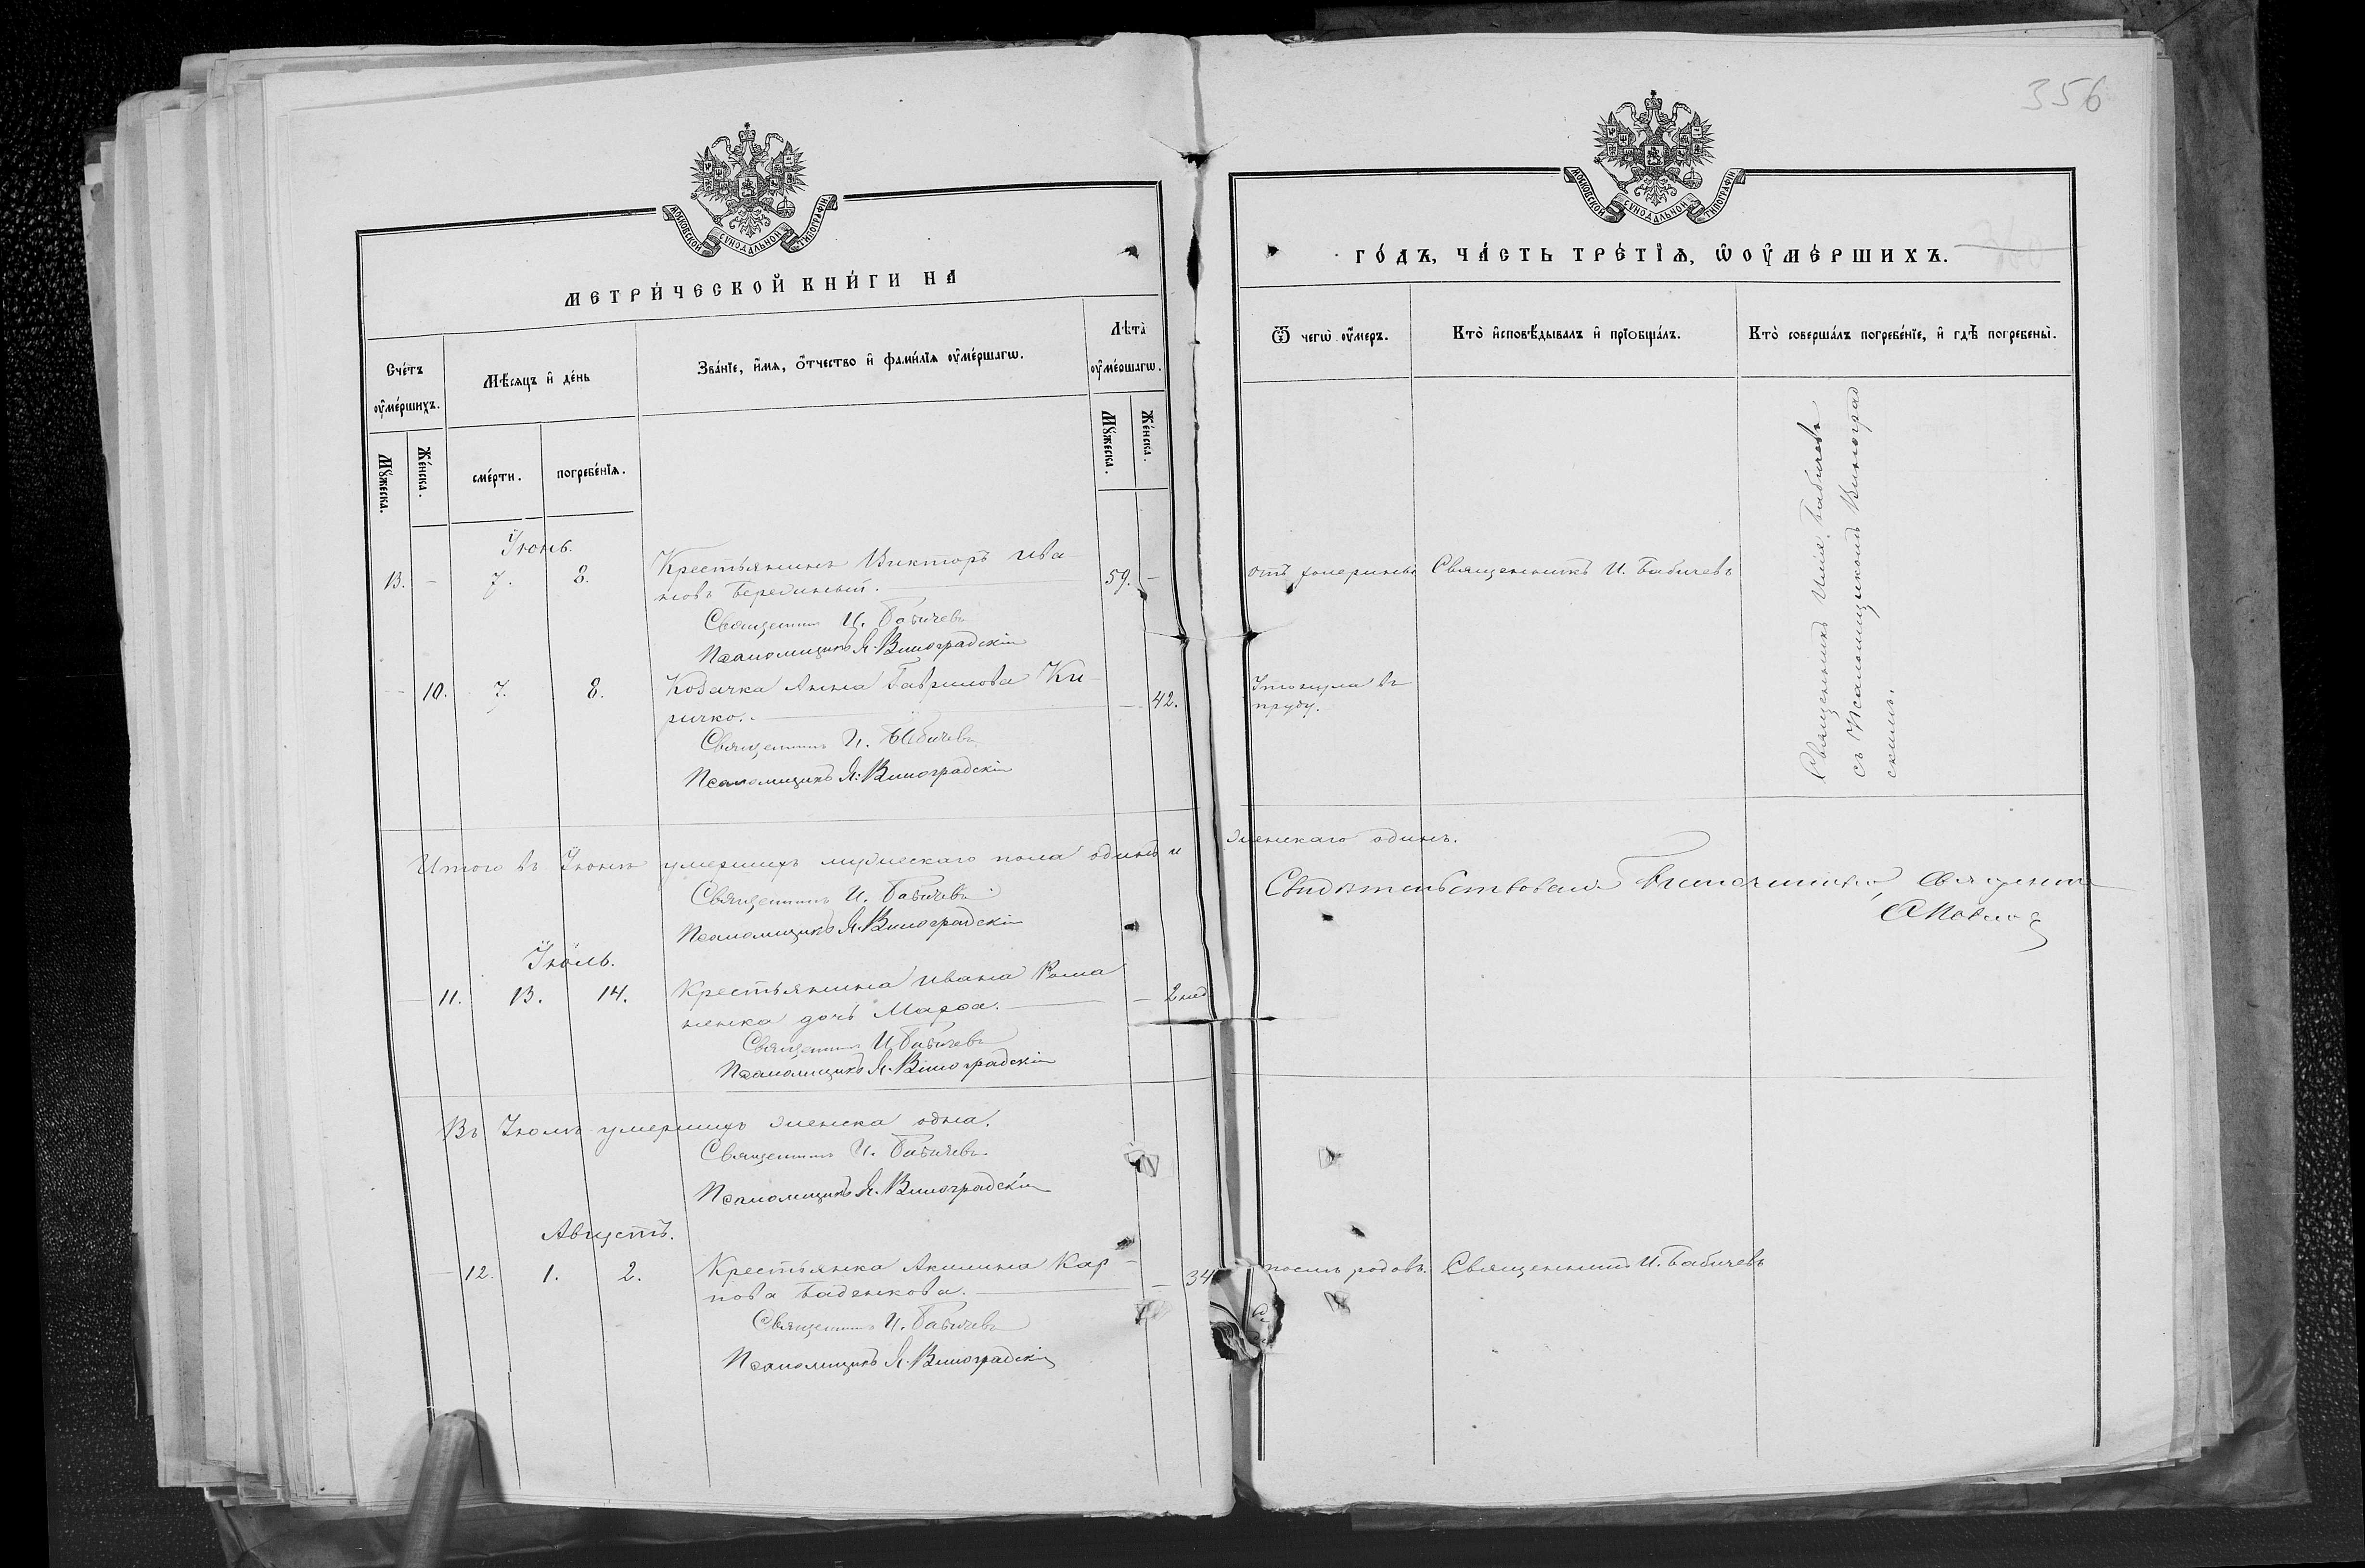 МОСКОВСКОЙ СѴНОДАЛЬНОЙ ТИПОГРАФІИ
МЕТРИ́ЧЕСКОЙ КНИ́ГИ НА
Сче́тъ ᲂумéршихъ.
Мѣ́сяцъ и҆ де́нь
Зва́нїе, и҆́мѧ, ѻ҆́тчество и҆ фами́лїѧ ᲂу҆ме́ршагѡ.
Лѣта̀ ᲂу҆ме́ршагѡ.
Мꙋ́жеска.
Же́нска.
сме́рти.
погребе́нїѧ.
Мꙋ́жеска.
Же́нска.
Іюнь.
13. - 7. 8. Крестьянинъ Викторъ Ива
новъ Берединный. 59. -
Священникъ И. Бабичевъ
Псаломщикъ Я. Виноградскій
- 10. 7. 8. Козачка Анна Гаврилова Ки-
ричко. - 42.
Священникъ И. Бабичевъ
Псаломщикъ Я. Виноградскій
Итого въ Іюнѣ умершихъ мужескаго пола одинъ и
Священникъ И. Бабичевъ
Псаломщикъ Я. Виноградскій
Іюль.
- 11. 13. 14. Крестьянина Ивана Рома
ненка дочь Марѳа. - 2 нед
Священникъ И. Бабичевъ
Псаломщикъ Я. Виноградскій
Въ Іюлѣ умершихъ женска одна.
Священникъ И. Бабичевъ
Псаломщикъ Я. Виноградскій
Августъ.
- 12. 1. 2. Крестьянка Акилина Кар-
пова Баденкова. - 34
Священникъ И. Бабичевъ
Псаломщикъ Я. Виноградскій
356
МОСКОВСКОЙ СѴНОДАЛЬНОЙ ТИПОГРАФІИ
ГО́ДЪ, ЧА́СТЬ ТРЕ́ТЇѦ, Ѡ҆ ОУ҆МЕ́РШИХЪ.
Ѿ чегѡ̀ ᲂу҆́меръ.
Кто̀ и҆сповѣ́дывалъ и҆ прїѡбща́лъ.
Кто̀ соверша́лъ погребе́нїе, и҆ гдѣ̀ погребены̀.
отъ холерины Священникъ И. Бабичевъ
Утонула въ
пруду.
Священникъ Илія Бабичевъ
съ Псаломщикомъ Виноград
скимъ.
женскаго одинъ.
Свидѣтельствовалъ Благочинный, Священникъ
послѣ родовъ. Священникъ И. Бабичевъ